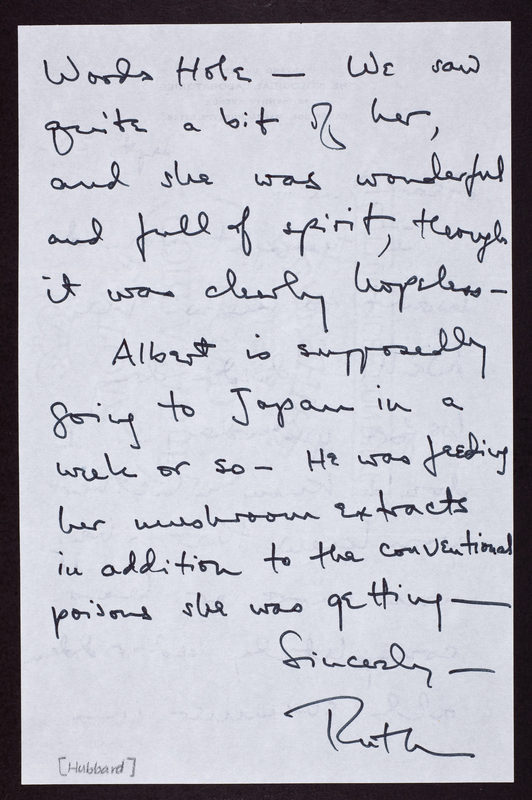 Woods Hole — We saw
quite a bit of her,
and she was wonderful
and full of spirit, though
it was clearly hopeless —
Albert is supposedly
going to Japan in a
week or so — He was feeding
her mushroom extracts
in addition to the conventional
poisons she was getting —
Sincerely —
Ruth
[Hubbard]